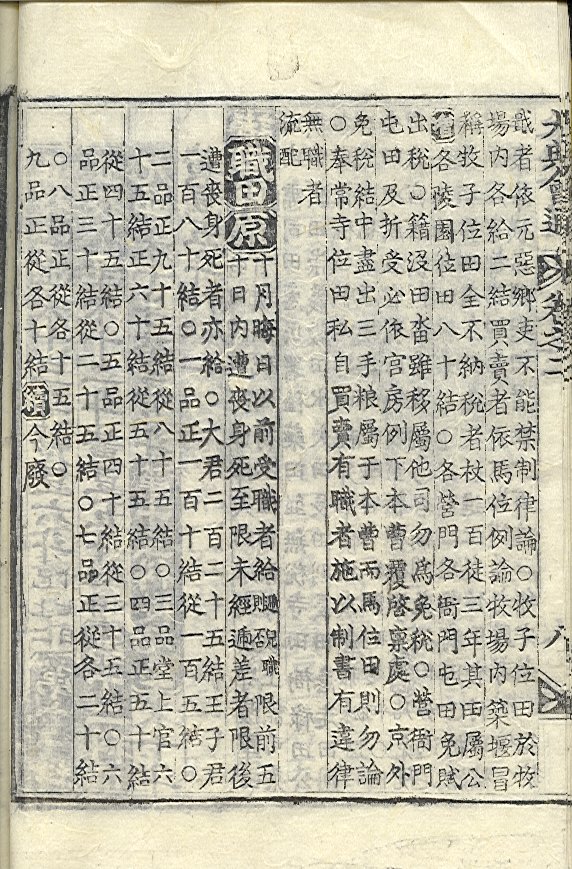 大典會通 卷之二 八
戢者依元惡鄕吏不能禁制律論○牧子位田於牧
場內各給二結買賣者依馬位例論牧場內築堰冒
稱牧子位田全不納稅者杖一百徒三年其田屬公
各陵園位田八十結○各營門各衙門屯田免賦
出稅○籍沒田畓雖移屬他司勿爲免稅○營衙門
屯田及折受必依宮房例下本曹覆啓稟處○京外
免稅結中盡出三手粮屬于本曹而馬位田則勿論
○奉常寺位田私自買賣有職者施以制書有違律
無職者
流配
職田 原 十月晦日以前受職者給遞兒職則否限前五
十日內遭喪身死至限未經遞差者限後
遭喪身死者亦給○大君二百二十五結王子君
一百八十結○一品正一百十結從一百五結○
二品正九十五結從八十五結○三品堂上官六
十五結正六十結從五十五結○四品正五十結
從四十五結○五品正四十結從三十五結○六
品正三十結從二十五結○七品正從各二十結
○八品正從各十五結○
九品正從各十結 續 今廢